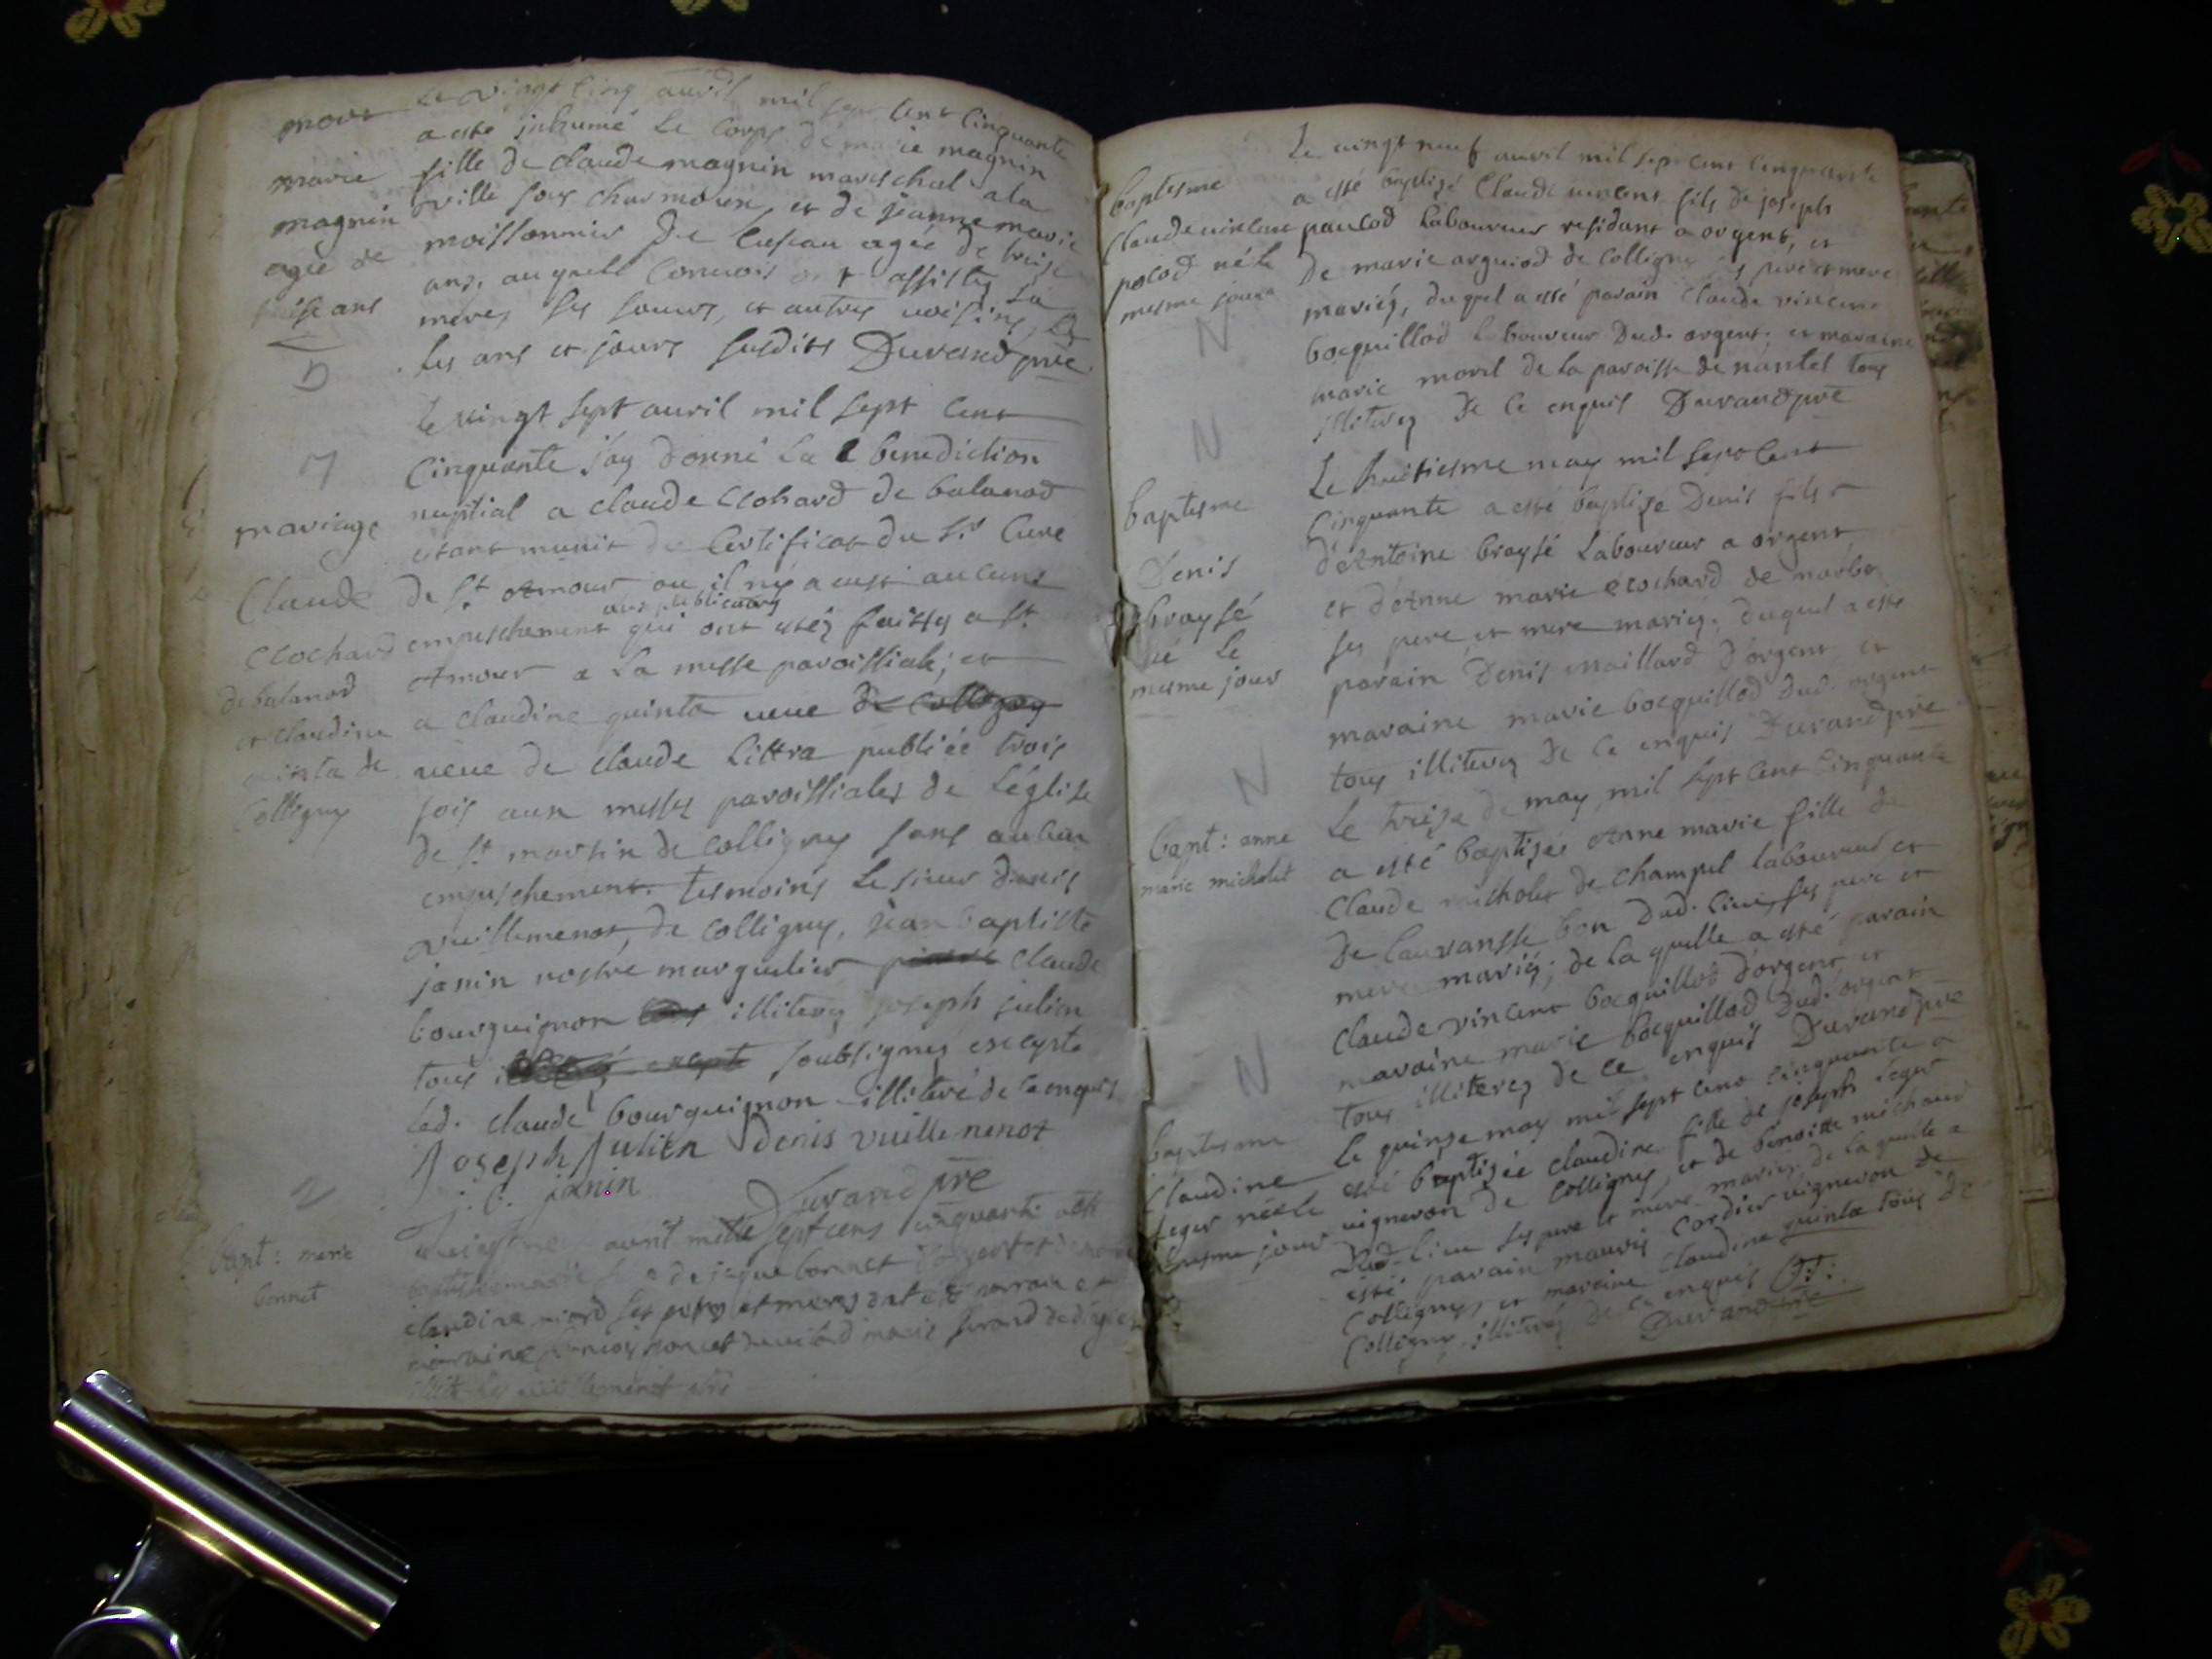 mort
marie
magnin
agée de
treise ans
Le vingt cinq auvril mil sept cent cinquante
a esté inhumé Le Corps de marie magnin
fille de claude magnin mareschal a la
ville sous charmoux, et de jeanne marie
moissonnier de Cuseau agée de treise
ans, au quelle Convois ont assistez La
meres ses soeurs, et autres voisins,
les ans et jours susdits Durand pre
mariage
Claude
Clochard
de balanod
et claudine
quinta de
Colligny
Le vingt sept auril mil sept cent
Cinquante j'ay donné La benediction
nuptial a claude Clohard de balanod
estant munit de Certificat du Sr Curé
de St Amour ou il n'y a eust aucune
empeschement aux publications qui ont estéz faittes a St
Amour a La messe paroissiale; et
a claudine quinta veue de Colligny
veue de claude Littra publiée trois
fois aux messes paroissiales de L'église
de St martin de Colligny sans aucun
empeschement. tesmoins Le sieur denis
vuillemenot, de Colligny, jean baptiste
janin nostre marguilier pierre claude
bourguignon illiterez joseph julien
tous soubsignez excepte
Led. claude bourguignon illiteré de ce enquis
Joseph Julien Denis vuillemenot
j. b. janin
Durand pre
bapt: marie
bonnet
avril mille sept cens cinquante
de jaque bonnet
claudine ses pere et mere
baptesme
Claude vincent
pocod né le
mesme jour
Le vingt neuf auvril mil sept cent Cinquante
a esté baptizé Claude vincent fils de joseph
paucod Laboureur residant a orgent, et
De marie arguiod de Colligny ses pere et mere
mariéz, duquel a esté parain Claude vincent
bocquillod Laboureur Dud. orgent; et maraine
marie morel de La paroisse de nantel tous
jlliterez De Ce enquis Durand pre
baptesme
Denis
braysé
né Le
mesme jour
Le huitiesme may mil sept Cent
Cinquante a esté baptizé Denis fils
d'Antoine braysé Laboureur a orgent
et d'Anne marie Crochard de
ses pere et mere mariez. duquel a esté
parain Denis maillard d'orgent et
maraine marie bocquillod Dud. orgent
tous illiterez De Ce enquis Durand pre
bapt: anne
marie micholet
Le treize de may mil sept Cent Cinquante
a esté baptizée Anne marie fille de
Claude micholet de champel laboureur et
De Lauransse bon Dud. Lieu, ses pere et
mere mariéz; de la quelle a esté parain
Claude vincent bocquillod d'orgent et
maraine marie bocquillod Dud. orgent
tous illiterez de Ce enquis Durand pre
baptesme
Claudine
Leger née le
mesme jour
Le quinze may mil sept Cent Cinquante a
esté baptizée claudine fille de joseph Leger
vigneron de Colligny, et de benoitte michaud
Dud. Lieu ses pere et mere mariez de la quelle a
esté parain mauris Cordier vigneron de
Colligny, et maraine claudine quinta tous de
Colligny, illiterez de Ce enquis
Durand pre